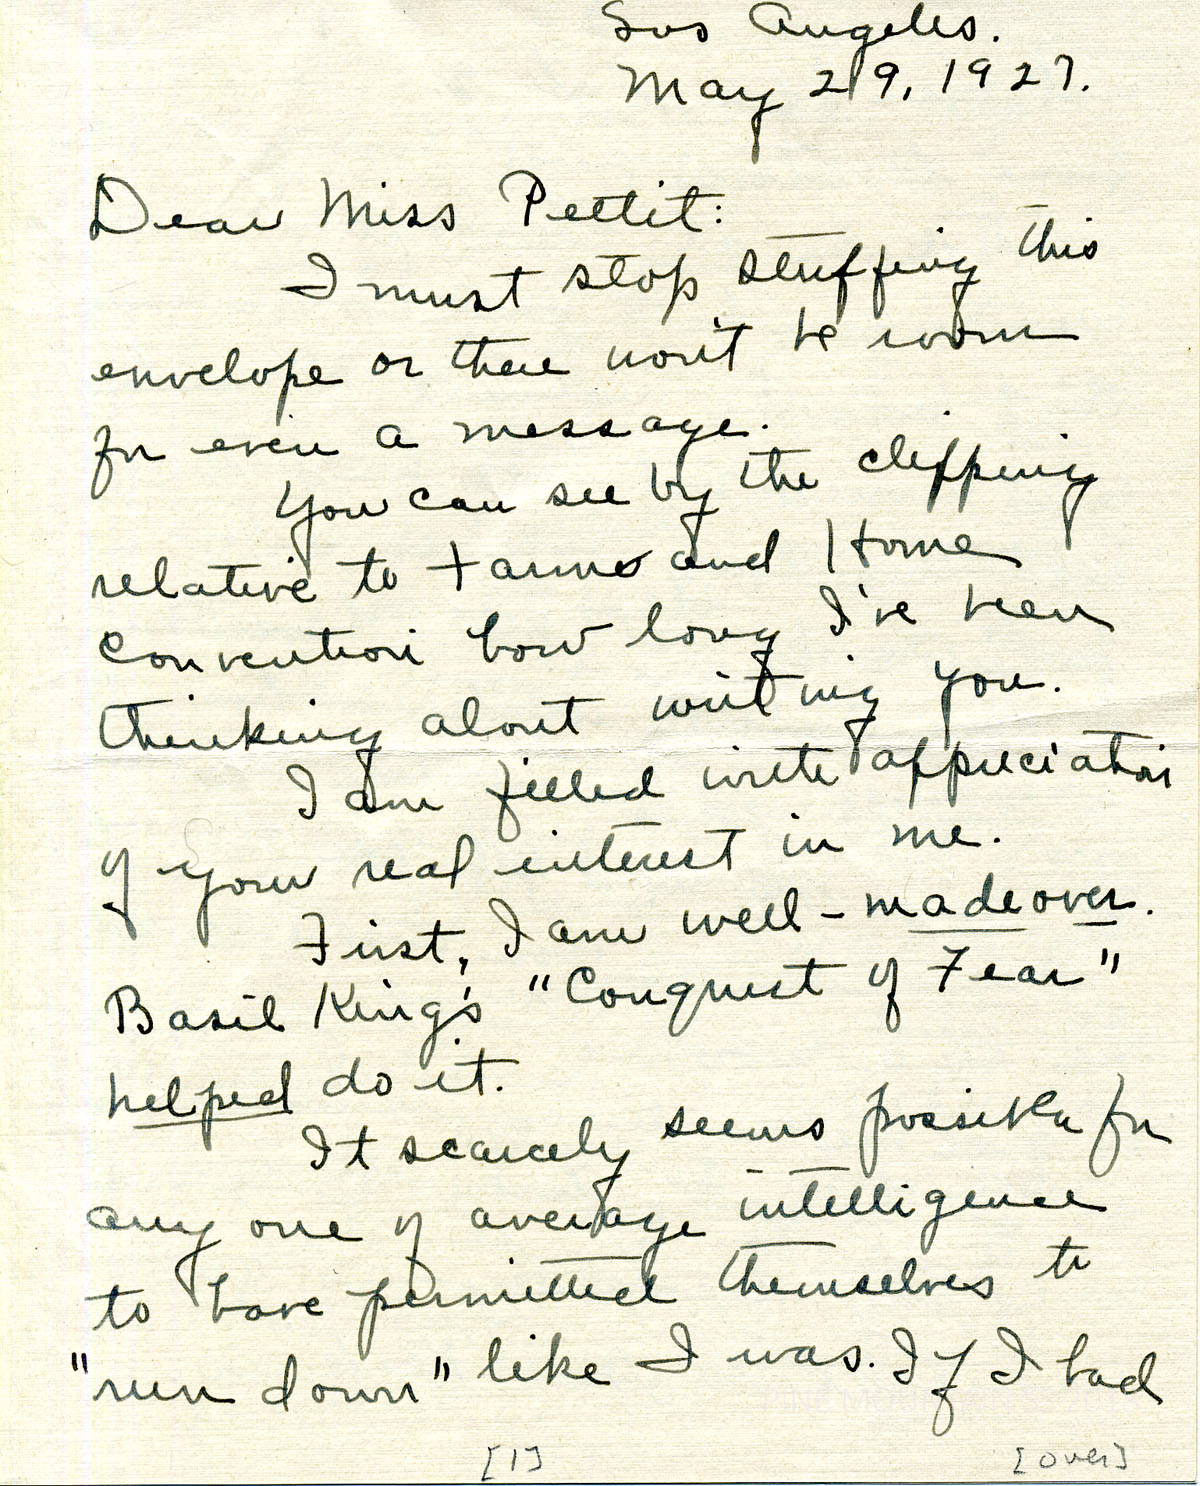 Los Angeles.
May 29, 1927.
Dear Miss Pettit:
I must stop stuffing this
envelope or there won't be room
for even a message.
You can see by the clipping
relative to Farms and Home
Convention how long I've been
thinking about writing you.
I am filled with appreciation
of your real interest in me.
First, I am well - made over.
Basil King's "Conquest of Fear"
helped do it.
It scarcely seems possible for
any one of average intelligence
to have permitted themselves to
"run down" like I was. If I had
[1] [over]